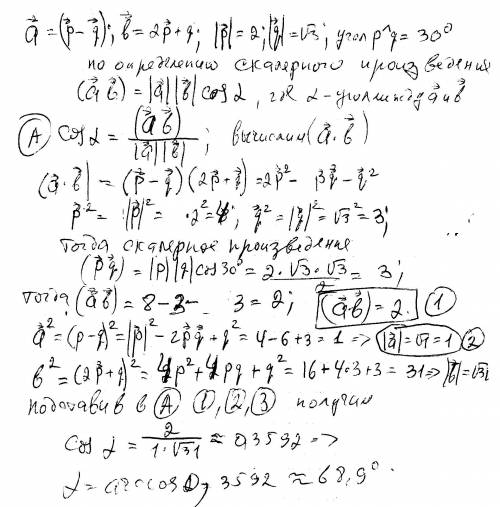 a⃗ = (p⃗ - q⃗); b⃗ = 2p⃗ + q; |p⃗| = 2; |q⃗| = √3; угол p^q = 30°
по определению скалярного произведения
(a⃗ b⃗) = |a⃗| |b⃗| cos α, где α - угол между a⃗ и b⃗
Ⓐ cos α = (a⃗ b⃗) / |a⃗| |b⃗| ; вычислим (a⃗ · b⃗)
(a⃗ · b⃗| = (p⃗ - q⃗)(2p⃗ + q⃗) = 2p⃗² - p⃗q⃗ - q⃗²
p⃗² = |p⃗|² = 2² = 4; q⃗² = |q⃗|² = √3² = 3;
Тогда скалярное произведение
(p⃗ q⃗) = |p| |q| cos 30° = 2 · √3 · √3 / 2 = 3;
тогда (a⃗ b⃗) = 8 - 3 - 3 = 2; (a⃗ b⃗) = 2. ①
a⃗² = (p - q)² = |p⃗|² - 2p⃗q⃗ + q² = 4 - 6 + 3 = 1 => |a⃗| = √1 = 1 ②
b² = (2p⃗ + q)² = 4p² + 4pq + q² = 16 + 4·3 + 3 = 31 => |b⃗| = √31
подставив в Ⓐ ①, ②, ③ получим
cos α = 2 / 1·√31 ≈ 0,3592 =>
α = arccos 0,3592 ≈ 68,9°.